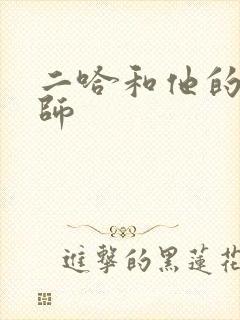 二哈和他的
師
進擊的黑蓮花